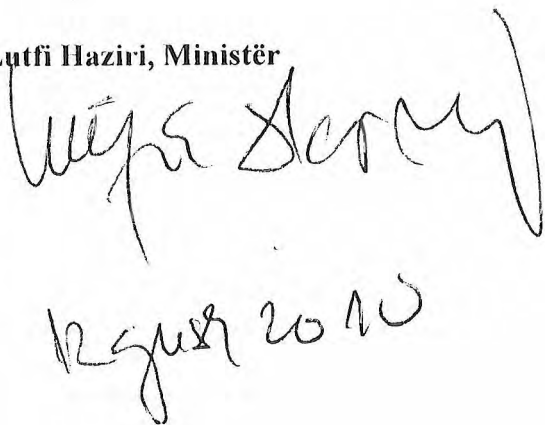 Lutfi Haziri, Ministër
12 gusht 2010